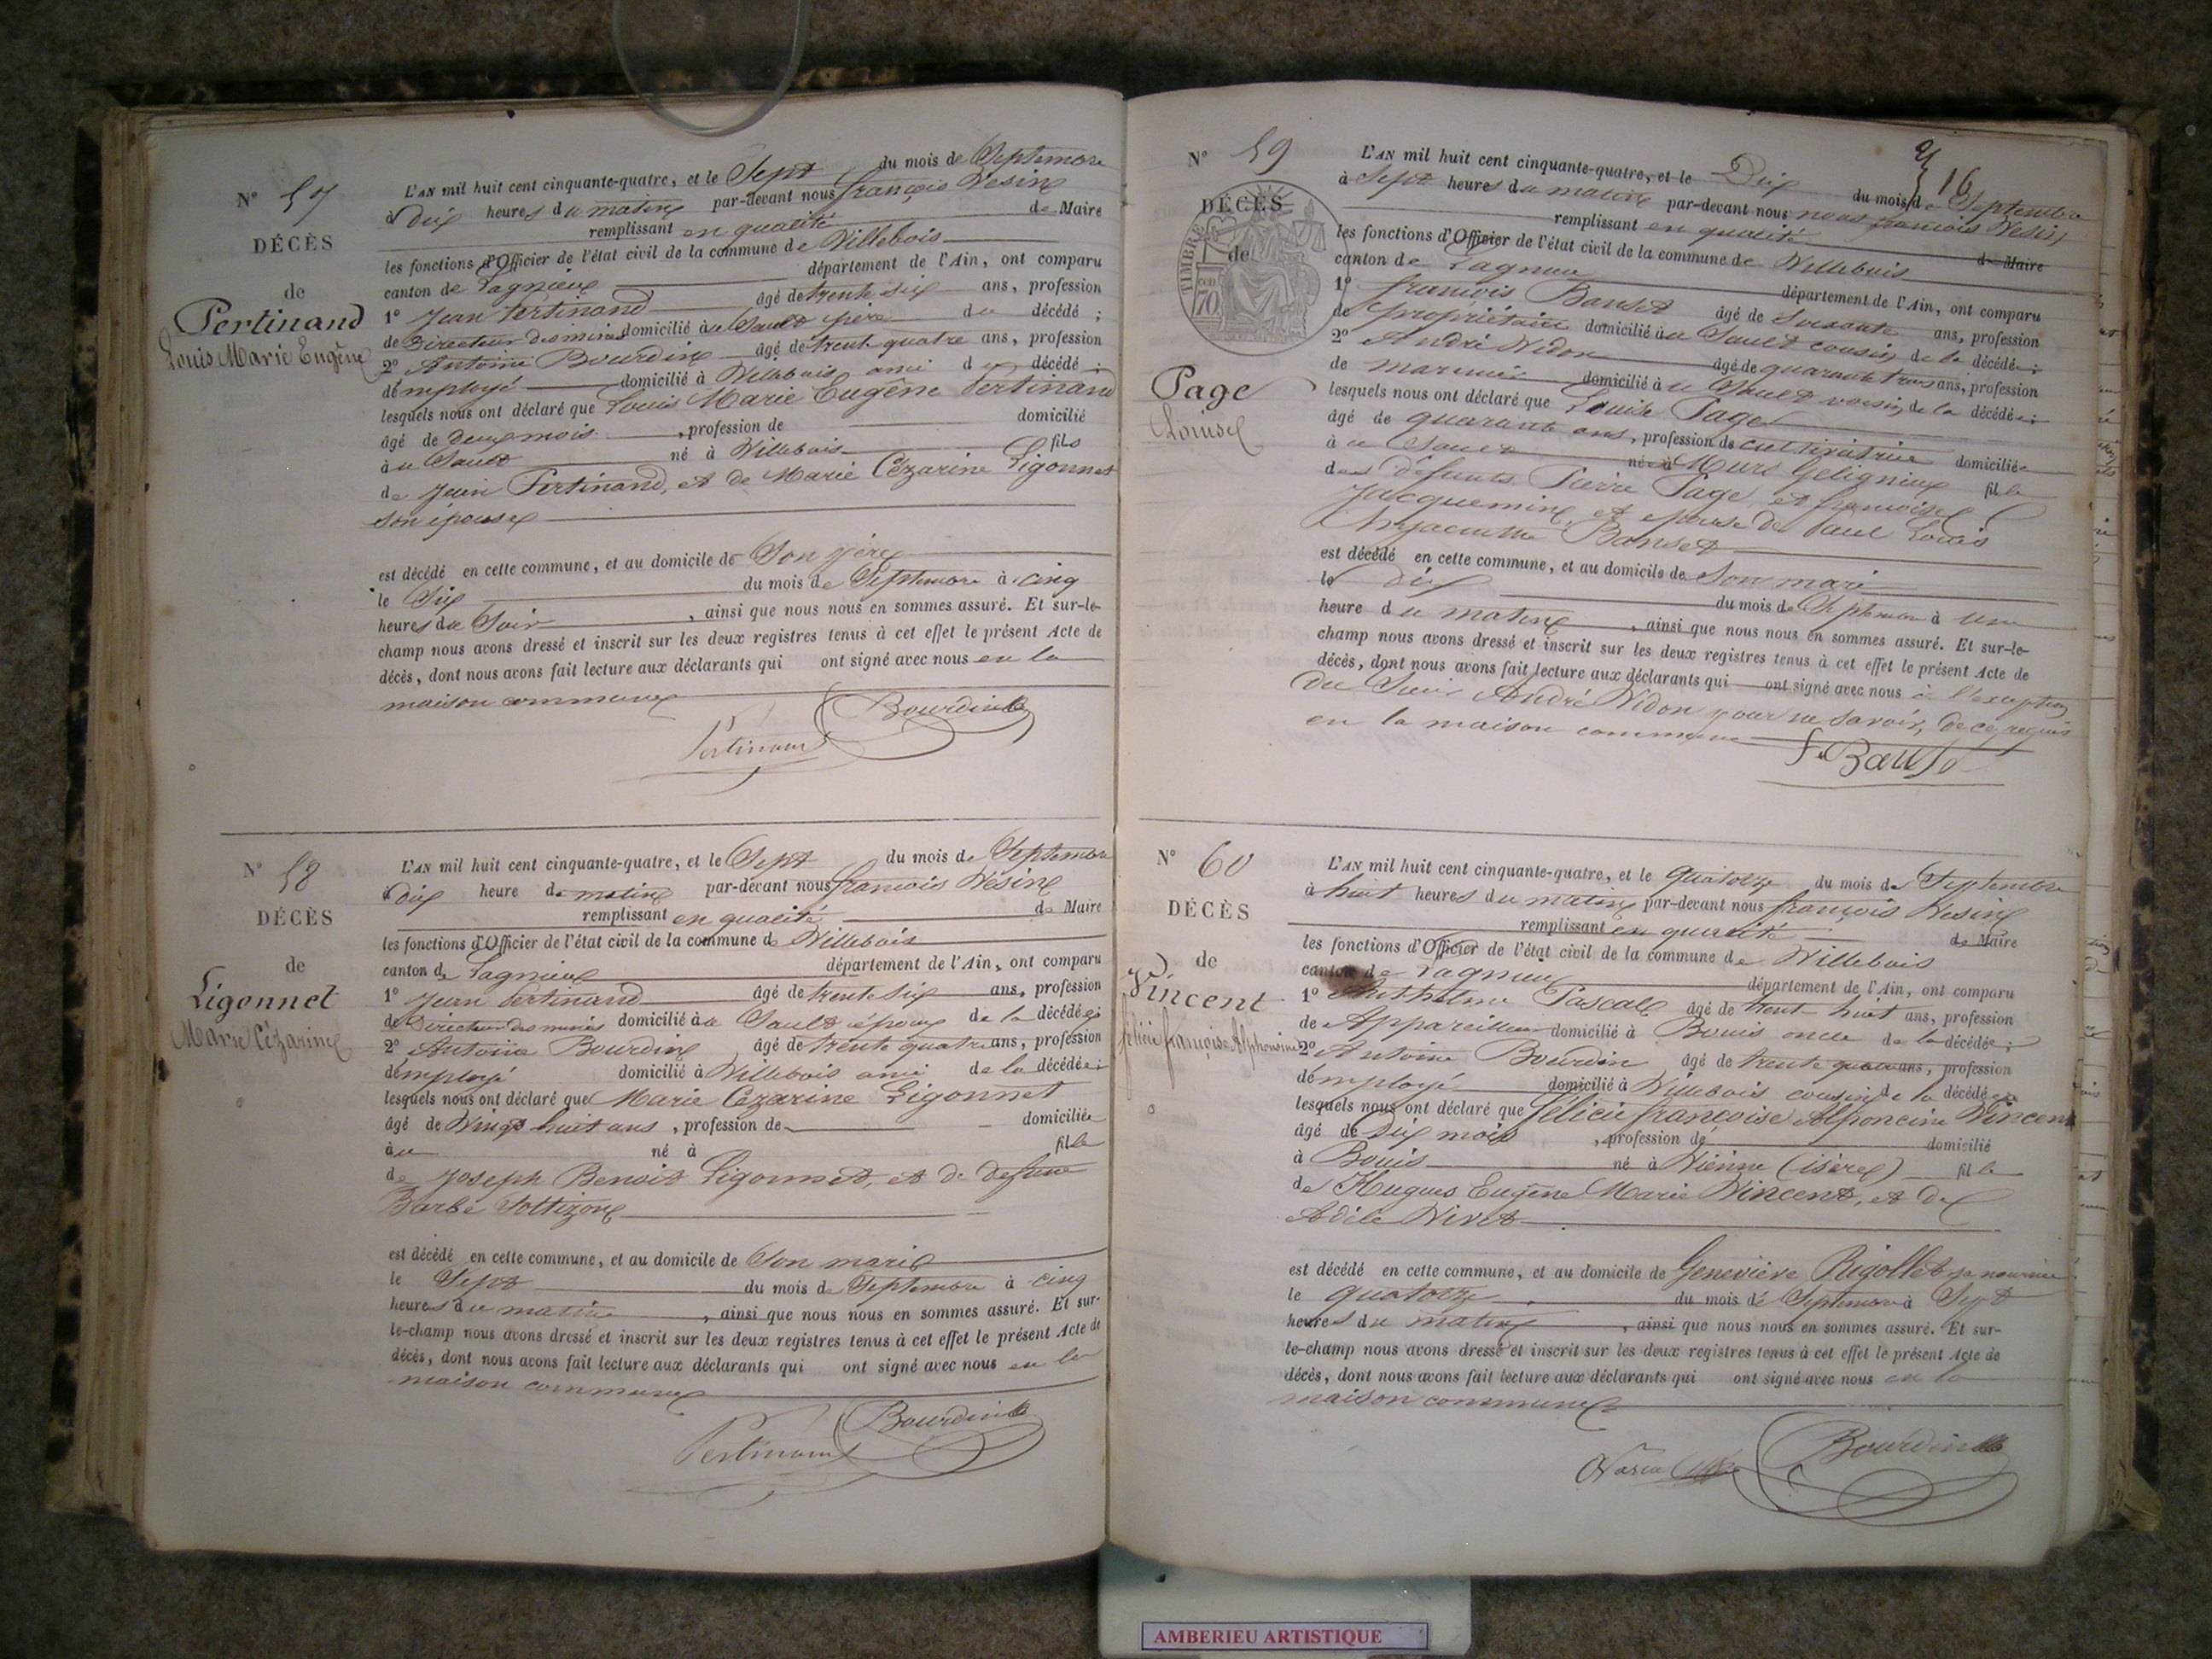 N° 57
DÉCÈS
de
Pertinand
Louis Marie Eugène
L'AN mil huit cent cinquante-quatre, et le Sept du mois de Septembre
à dix heures du matin par-devant nous françois Vésine
remplissant en qualité de Maire
les fonctions d'Officier de l'état civil de la commune de Villebois
canton de Lagnieux département de l'Ain, ont comparu
1° Jean Pertinand âgé de trente six ans, profession
de Directeur des mines domicilié à u Sault père du décédé ;
2° Antoine Bourdin âgé de trente quatre ans, profession
d'employé domicilié à Villebois ami du décédé ;
lesquels nous ont déclaré que Louis Marie Eugène Pertinand
âgé de deux mois, profession de domicilié
à u Sault né à Villebois fils
de Jean Pertinand, et de Marie Cézarine Ligonnet
son épouse
est décédé en cette commune, et au domicile de Son père
le Six du mois de Septembre à cinq
heures du Soir, ainsi que nous nous en sommes assuré. Et sur-le-
champ nous avons dressé et inscrit sur les deux registres tenus à cet effet le présent Acte de
décès, dont nous avons fait lecture aux déclarants qui ont signé avec nous en la
maison commune
Pertinand Bourdin
N° 58
DÉCÈS
de
Ligonnet
Marie Cézarine
L'AN mil huit cent cinquante-quatre, et le Sept du mois de Septembre
à dix heure de matin par-devant nous francois Vésine
remplissant en qualité de Maire
les fonctions d'Officier de l'état civil de la commune de Villebois
canton de Lagnieux département de l'Ain, ont comparu
1° Jean Pertinand âgé de trente six ans, profession
de Directeur des mines domicilié à u Sault époux de la décédée ;
2° Antoine Bourdin âgé de trente quatre ans, profession
d'employé domicilié à Villebois ami de la décédée ;
lesquels nous ont déclaré que Marie Cézarine Ligonnet
âgé de Vingt huit ans, profession de domiciliée
à u né à fille
de Joseph Benoit Ligonnet, et de defunte
Barbe
est décédé en cette commune, et au domicile de Son marie
le Sept du mois de Septembre à cinq
heures du matin, ainsi que nous nous en sommes assuré. Et sur-
le-champ nous avons dressé et inscrit sur les deux registres tenus à cet effet le présent Acte de
décès, dont nous avons fait lecture aux déclarants qui ont signé avec nous en la
maison commune
Pertinand Bourdin
16
N° 59
DÉCÈS
de
TIMBRE
70
Page
Louise
L'AN mil huit cent cinquante-quatre, et le Dix du mois de Septembre
à Sept heures du matin par-devant nous nous francois Vésin
remplissant en qualité de Maire
les fonctions d'Officier de l'état civil de la commune de Villebois
canton de Lagnieu département de l'Ain, ont comparu
1° francois Banset âgé de Soixante ans, profession
de propriétaire domicilié à u Sault cousin de la décédée ;
2° André Nidon âgé de quarante trois ans, profession
de marinier domicilié à u Sault voisin de la décédée ;
lesquels nous ont déclaré que Louise Page
âgé de quarante ans, profession de cultivatrice domiciliée
à u Sault née à Murs Gelignieux fille
des defunts Pierre Page et francoise
Jacquemin, et épouse de Paul Louis
Banset
est décédé en cette commune, et au domicile de Son mari
le dix du mois de Septembre à une
heure du matin, ainsi que nous nous en sommes assuré. Et sur-le-
champ nous avons dressé et inscrit sur les deux registres tenus à cet effet le présent Acte de
décès, dont nous avons fait lecture aux déclarants qui ont signé avec nous à l'exception
du Sieur André Nidon pour ne savoir, de ce requis
en la maison commune
N° 60
DÉCÈS
de
Vincent
felicie françoise Alphonsine
L'AN mil huit cent cinquante-quatre, et le quatorze du mois de Septembre
à huit heures du matin par-devant nous françois Vésine
remplissant en qualité de Maire
les fonctions d'Officier de l'état civil de la commune de Villebois
canton de Lagnieu département de l'Ain, ont comparu
1° Anthelme Pascal âgé de trent huit ans, profession
de Appareilleur domicilié à Bouis oncle de la décédée ;
2° Antoine Bourdin âgé de trente quatre ans, profession
d'employé domicilié à Villebois cousin de la décédée
lesquels nous ont déclaré que félicie francoise Alponcine Vincent
âgé de dix mois, profession de domicilié
à Bouis né à Vienne (isère) fille
de Hugues Eugène Marie Vincent, et de
Adèle Vivet
est décédé en cette commune, et au domicile de Geneviève Rigollet sa nourrice
le quatorze du mois de Septembre à Sept
heures du matin, ainsi que nous nous en sommes assuré. Et sur-
le-champ nous avons dressé et inscrit sur les deux registres tenus à cet effet le présent Acte de
décès, dont nous avons fait lecture aux déclarants qui ont signé avec nous en la
maison commune
Bourdin
AMBERIEU ARTISTIQUE